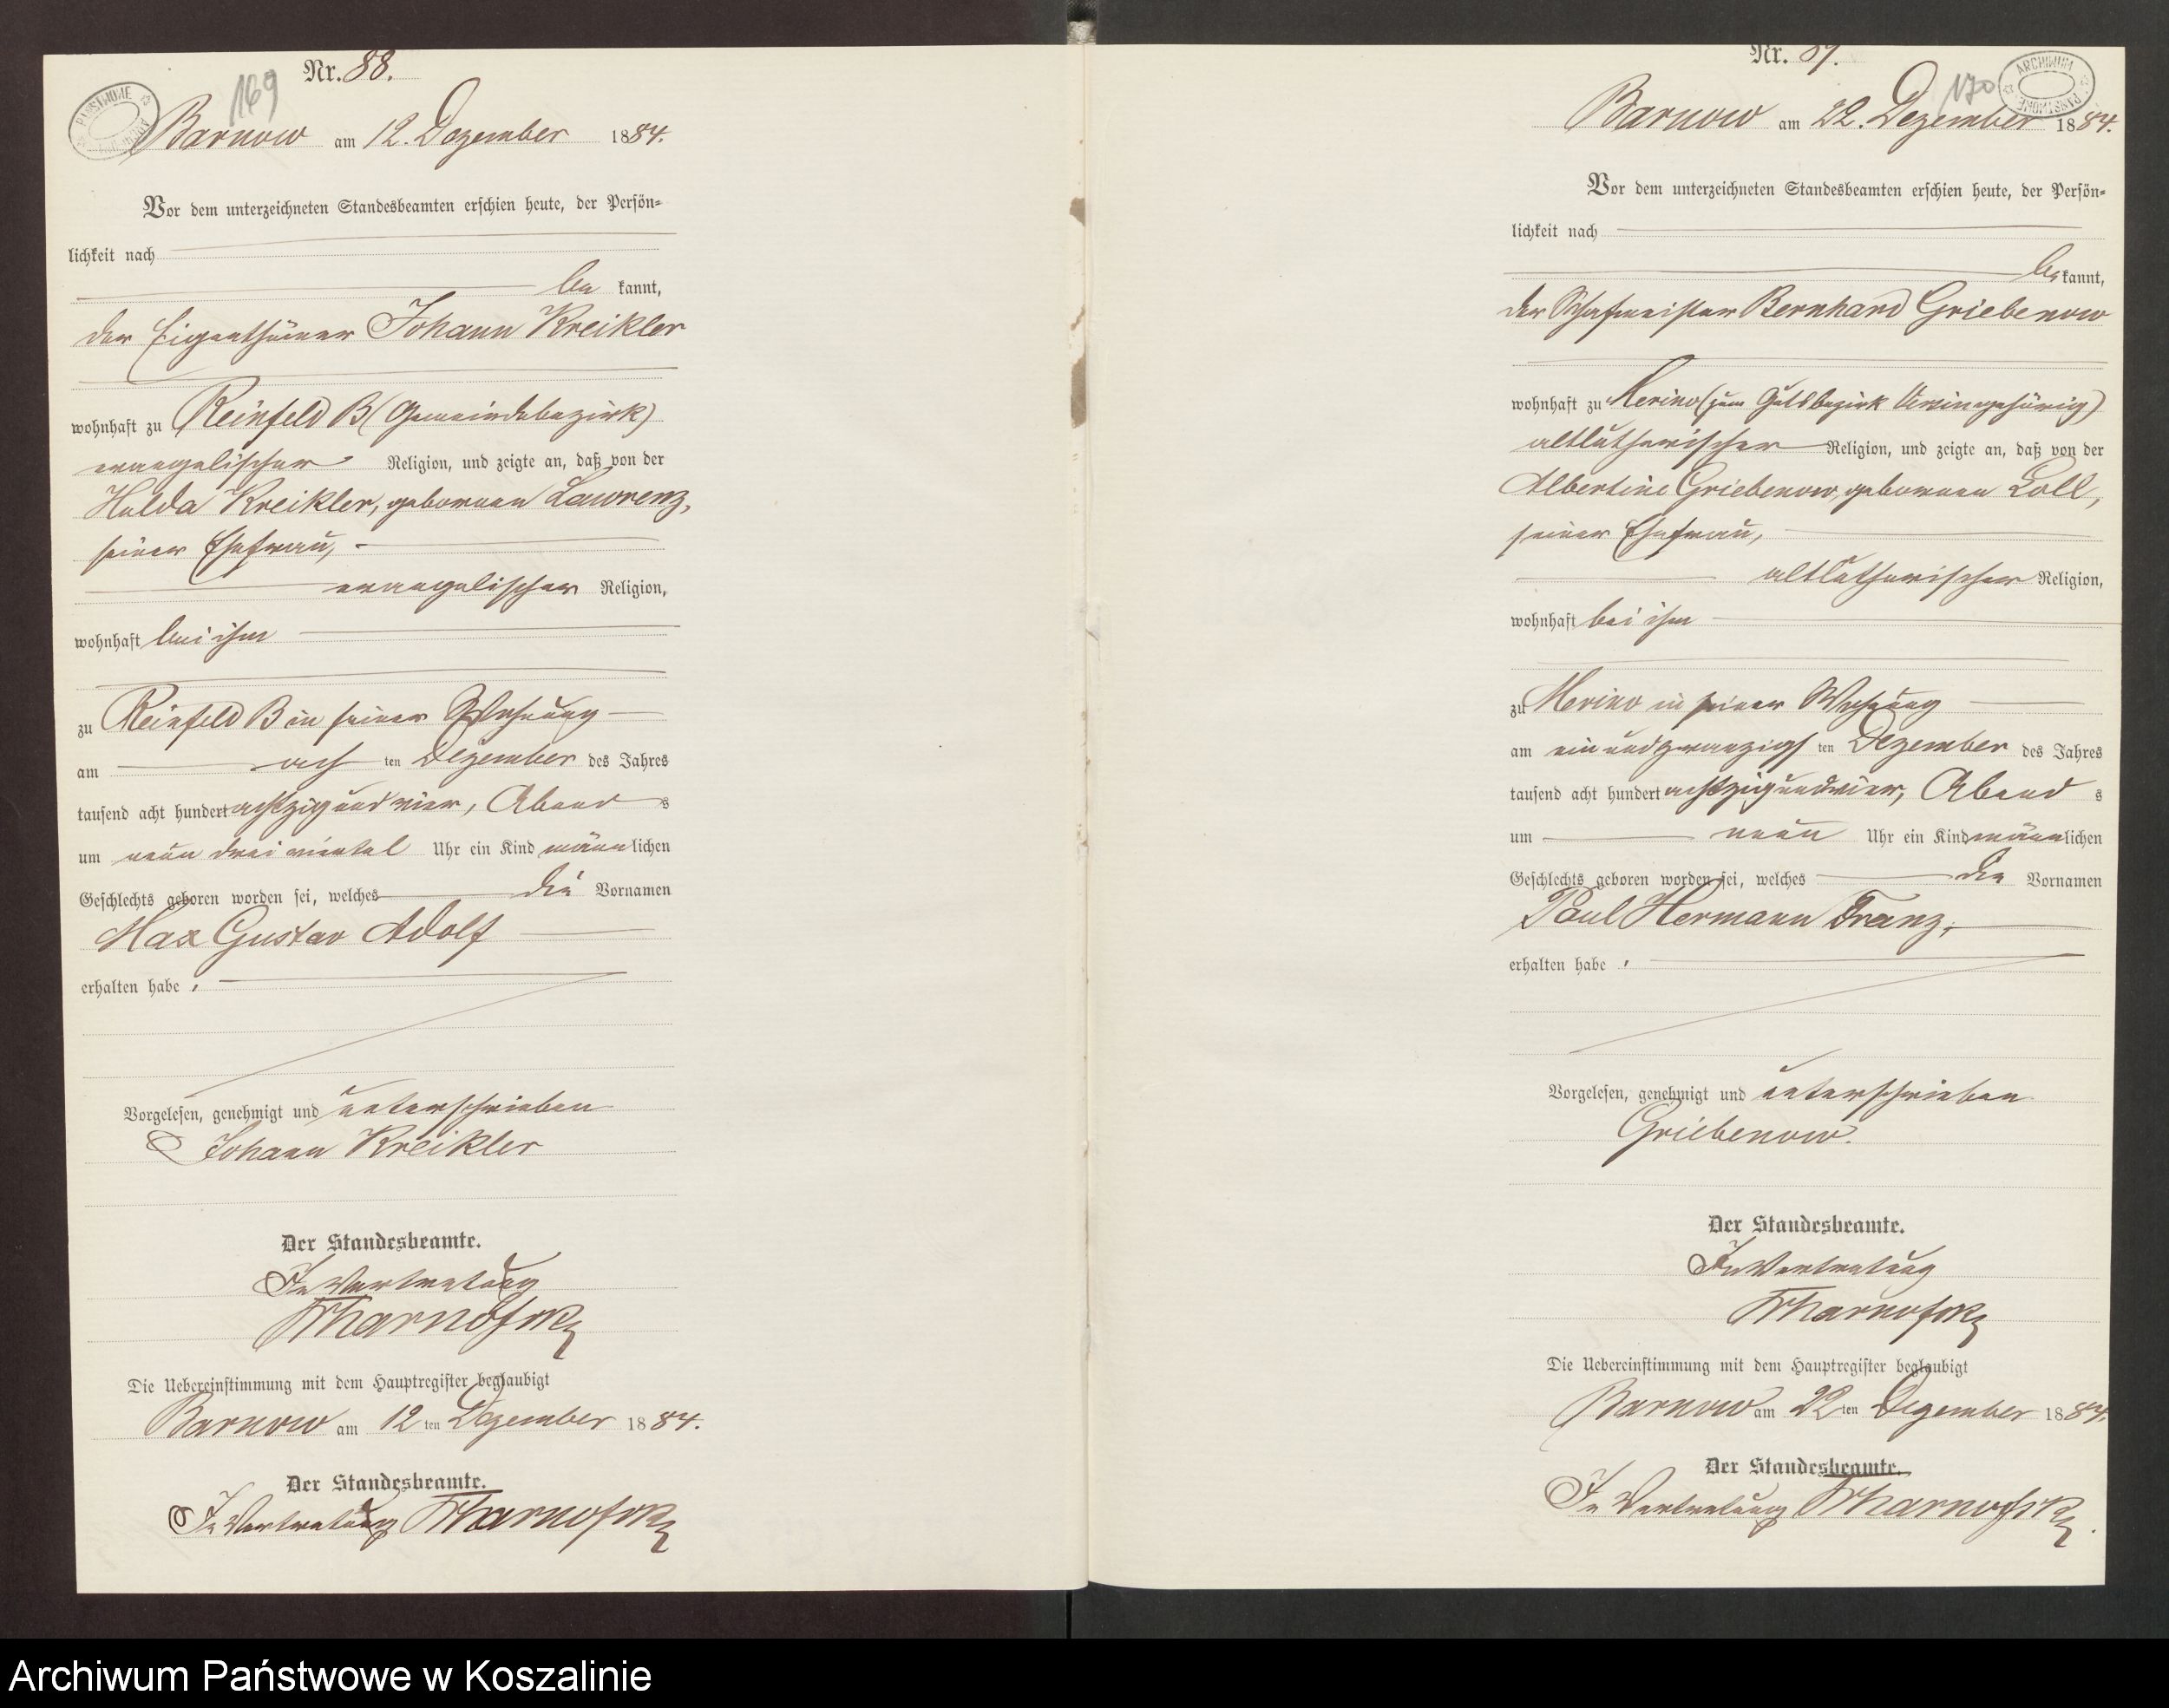 Nr. 88.
169
Barnow am 12. Dezember 1884.
Vor dem unterzeichneten Standesbeamten erschien heute, der Persön-
lichkeit nach
be kannt,
der Eigenthümer Johann Kreikler
wohnhaft zu Reinfeld B (Gemeindebezirk)
evangelischer Religion, und zeigte an, daß von der
Hulda Kreikler, geborenen Lawrenz,
seiner Ehefrau,
evangelischer Religion,
wohnhaft bei ihm
zu Reinfeld B in seiner Wohnung
am acht ten Dezember des Jahres
tausend acht hundert achtzig und vier, Abend s
um neun drei viertel Uhr ein Kind männlichen
Geschlechts geboren worden sei, welches die Vornamen
Max Gustav Adolf
erhalten habe.
Vorgelesen, genehmigt und unterschrieben
Johann Kreikler
Der Standesbeamte.
In Vertretung
Die Uebereinstimmung mit dem Hauptregister beglaubigt
Barnow am 12 ten Dezember 1884.
Der Standesbeamte.
In Vertretung
Nr. 89.
170
ARCHIWUM PAŃSTWOWE
Barnow am 22. Dezember 1884.
Vor dem unterzeichneten Standesbeamten erschien heute, der Persön-
lichkeit nach
be kannt,
der Schafmeister Bernhard Griebenow
wohnhaft zu Merino (zum Gutsbezirk gehörig)
altlutherischer Religion, und zeigte an, daß von der
Albertine Griebenow, geborenen Loll,
seiner Ehefrau,
altlutherischer Religion,
wohnhaft bei ihm
zu Merino in seiner Wohnung
am ein und zwanzigs ten Dezember des Jahres
tausend acht hundert achtzig und vier, Abend s
um neun Uhr ein Kind männlichen
Geschlechts geboren worden sei, welches die Vornamen
Paul Hermann Franz,
erhalten habe.
Vorgelesen, genehmigt und unterschrieben
Griebenow.
Der Standesbeamte.
In Vertretung
Die Uebereinstimmung mit dem Hauptregister beglaubigt
Barnow am 22 ten Dezember 1884.
Der Standesbeamte.
In Vertretung
Archiwum Państwowe w Koszalinie